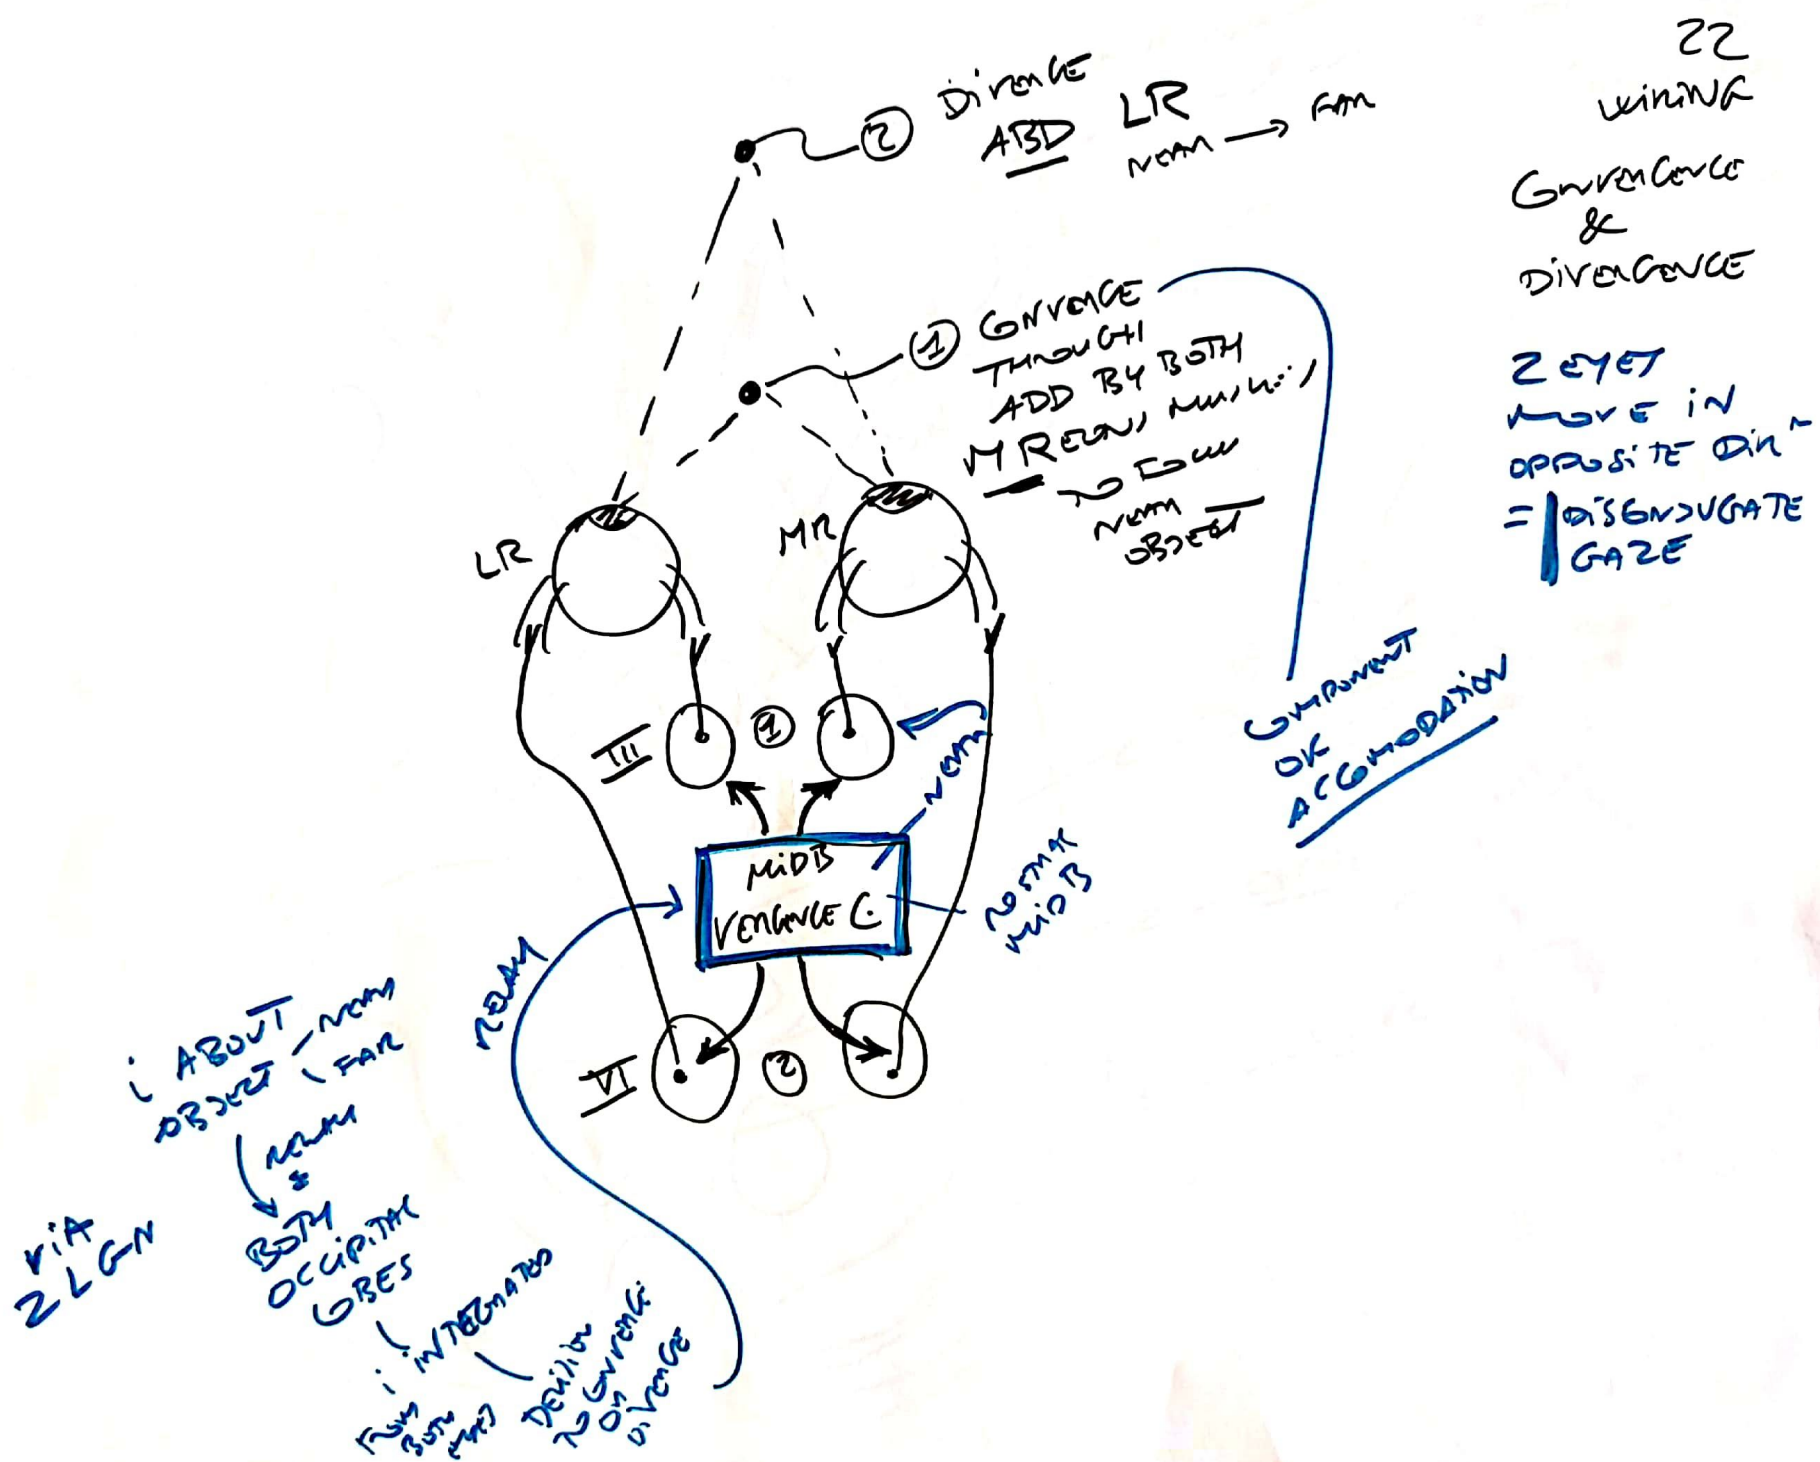 22
WIRING
CONVERGENCE
&
DIVERGENCE
2 EYES
MOVE IN
OPPOSITE DIR^n
= DISCONJUGATE
GAZE
2 DIVERGE
ABD LR
NEAR → FAR
1 CONVERGE
THROUGH
ADD BY BOTH
M RECTUS MUSCLES
TO FOCUS
NEAR
OBJECT
COMPONENT
OF
ACCOMODATION
LR
MR
III
1
NEAR
MIDB
VERGENCE C.
ROSTRAL
MIDB
VI
2
RELAY
i ABOUT
OBJECT
NEAR
FAR
RELAY
BOTH
OCCIPITAL
LOBES
VIA
2 LGN
i INTEGRATED
FROM
BOTH
EYES
DECISION
TO CONVERGE
OR
DIVERGE